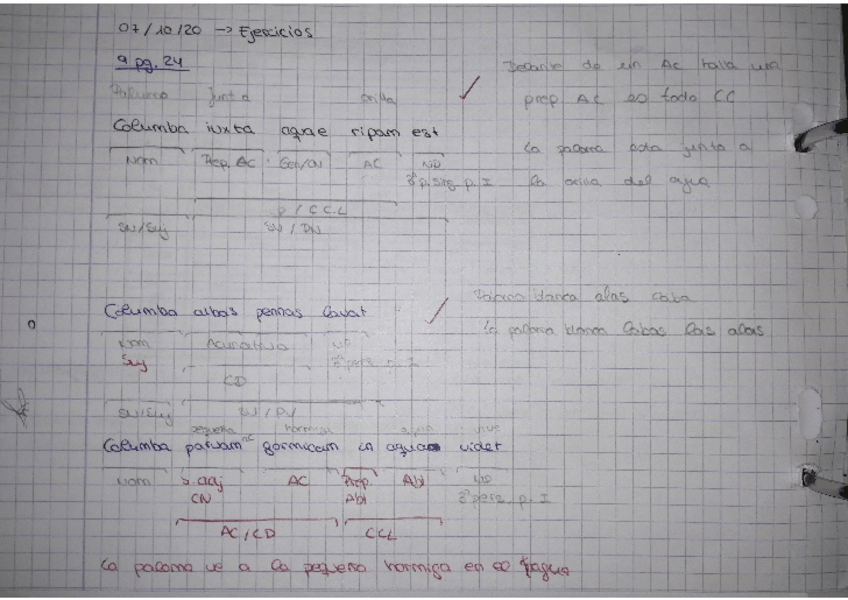 07/10/20 → Ejercicios
9 pg. 24
Delante de un AC halla una
prep AC es todo CC
junto a orilla
Columba iuxta aquae ripam est
La paloma esta junto a
la orilla del agua
Nom Prep. AC Gen/CN AC NP
3ª p. sing. p. I
P / CCL
SN/Suj SV / PV
Paloma blanca alas
Columba albas pennas lavat
la paloma blanca las alas
Nom Acusativo NP
Suj 3ª pers. p. I
CD
SN/Suj SV / PV
pequeña hormiga agua
Columba parvam formicam in aqua videt
Nom S. adj AC Prep. Abl NP
CN Abl 3ª pers. p. I
AC/CD CCL
La paloma ve a la pequeña hormiga en el agua